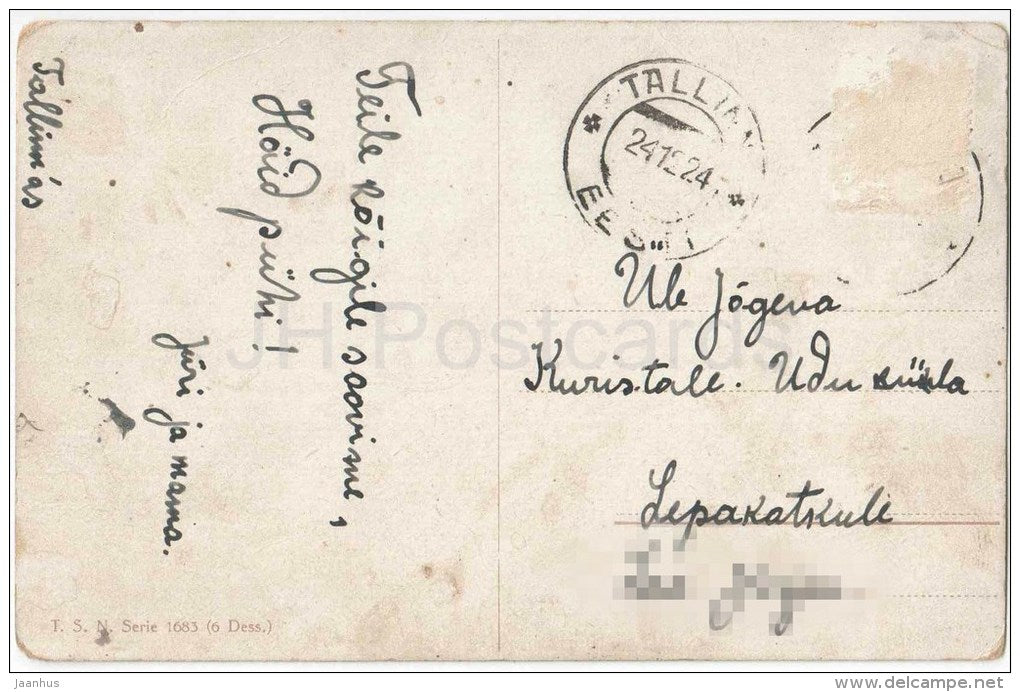 Tallinnas
Teile kõigile soovime,
Häid pühi!
Jüri ja mama.
T. S. N. Serie 1683 (6 Dess.)
TALLINN
24.12.24
EESTI
Üle Jõgeva
Kuristale. Udu küüla
Lepakatkule
JH Postcards
jaanhus
www.delcampe.net